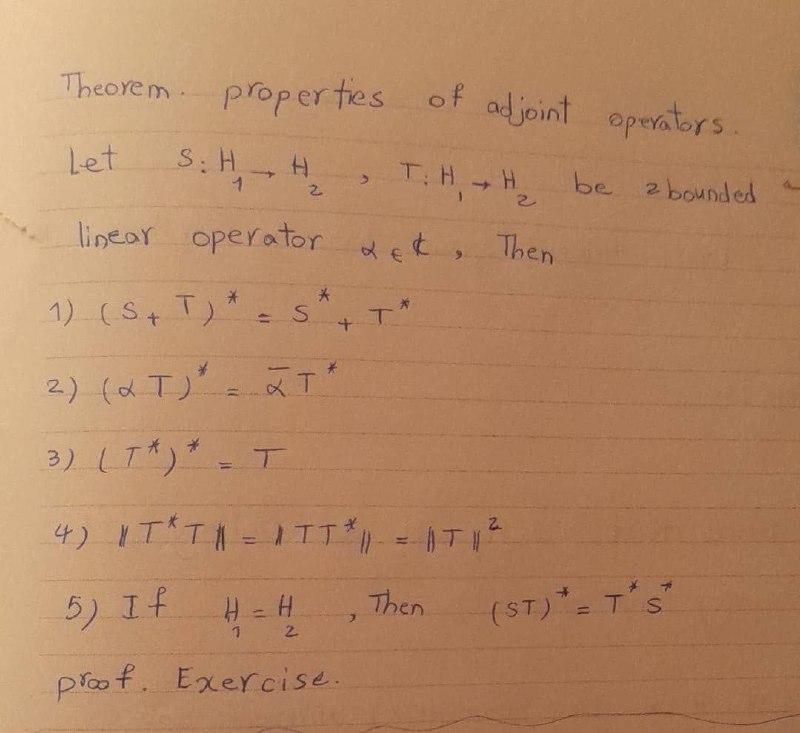 Theorem. properties of adjoint operators.
Let S: H₁ → H₂ , T: H₁ → H₂ be 2 bounded
linear operator α ∈ ℂ, Then
1) (S + T)* = S* + T*
2) (αT)* = ᾱT*
3) (T*)* = T
4) ‖T*T‖ = ‖TT*‖ = ‖T‖²
5) If H₁ = H₂ , Then (ST)* = T*S*
proof. Exercise.